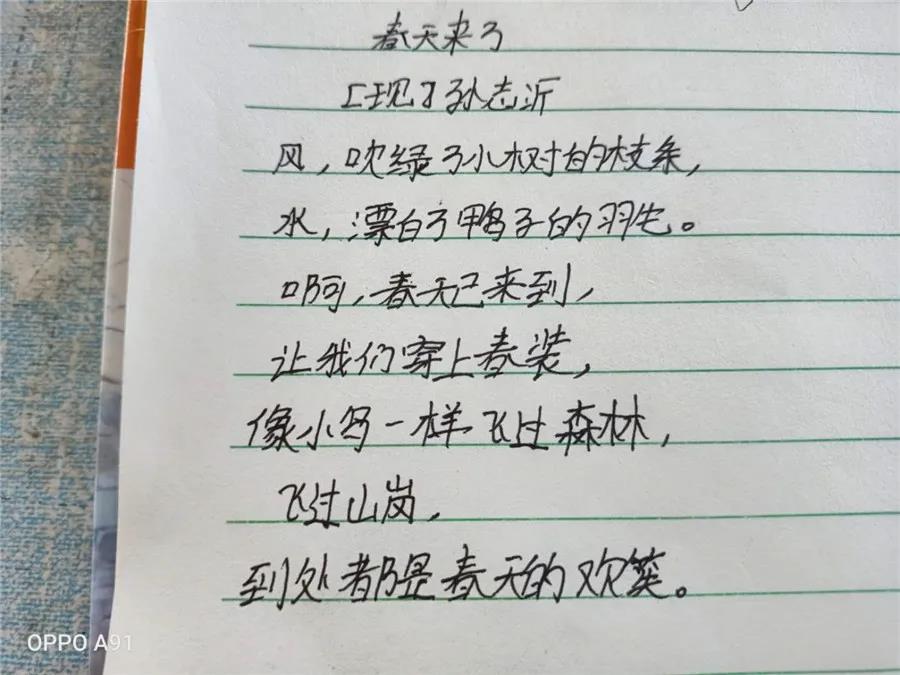 春天来了
[现]孙志沂
风,吹绿了小树的枝条,
水,漂白了鸭子的羽毛。
啊,春天已来到,
让我们穿上春装,
像小鸟一样飞过森林,
飞过山岗,
到处都是春天的欢笑。
OPPO A91